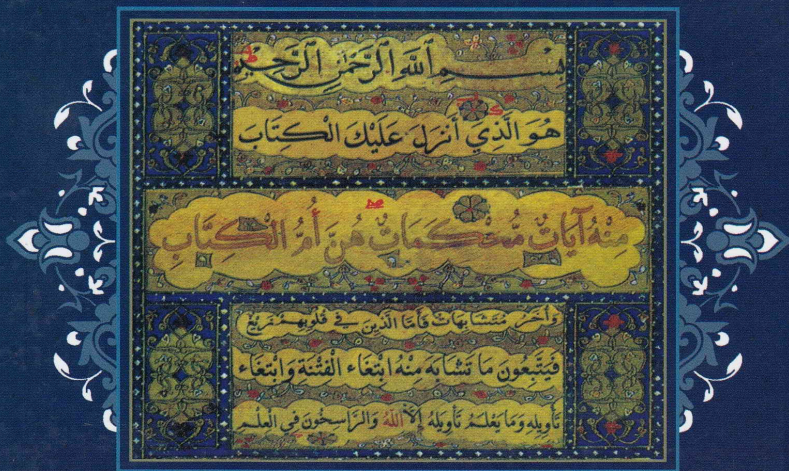 بِسْمِ ٱللَّهِ ٱلرَّحْمٰنِ ٱلرَّحِيْمِ
هُوَ الَّذِي أَنزَلَ عَلَيْكَ الْكِتَابَ
مِنْهُ آيَاتٌ مُّحْكَمَاتٌ هُنَّ أُمُّ الْكِتَابِ
وَأُخَرُ مُتَشَابِهَاتٌ فَأَمَّا الَّذِينَ فِي قُلُوبِهِمْ زَيْغٌ
فَيَتَّبِعُونَ مَا تَشَابَهَ مِنْهُ ابْتِغَاء الْفِتْنَةِ وَابْتِغَاء
تَأْوِيلِهِ وَمَا يَعْلَمُ تَأْوِيلَهُ إِلاَّ اللهُ وَالرَّاسِخُونَ فِي الْعِلْمِ